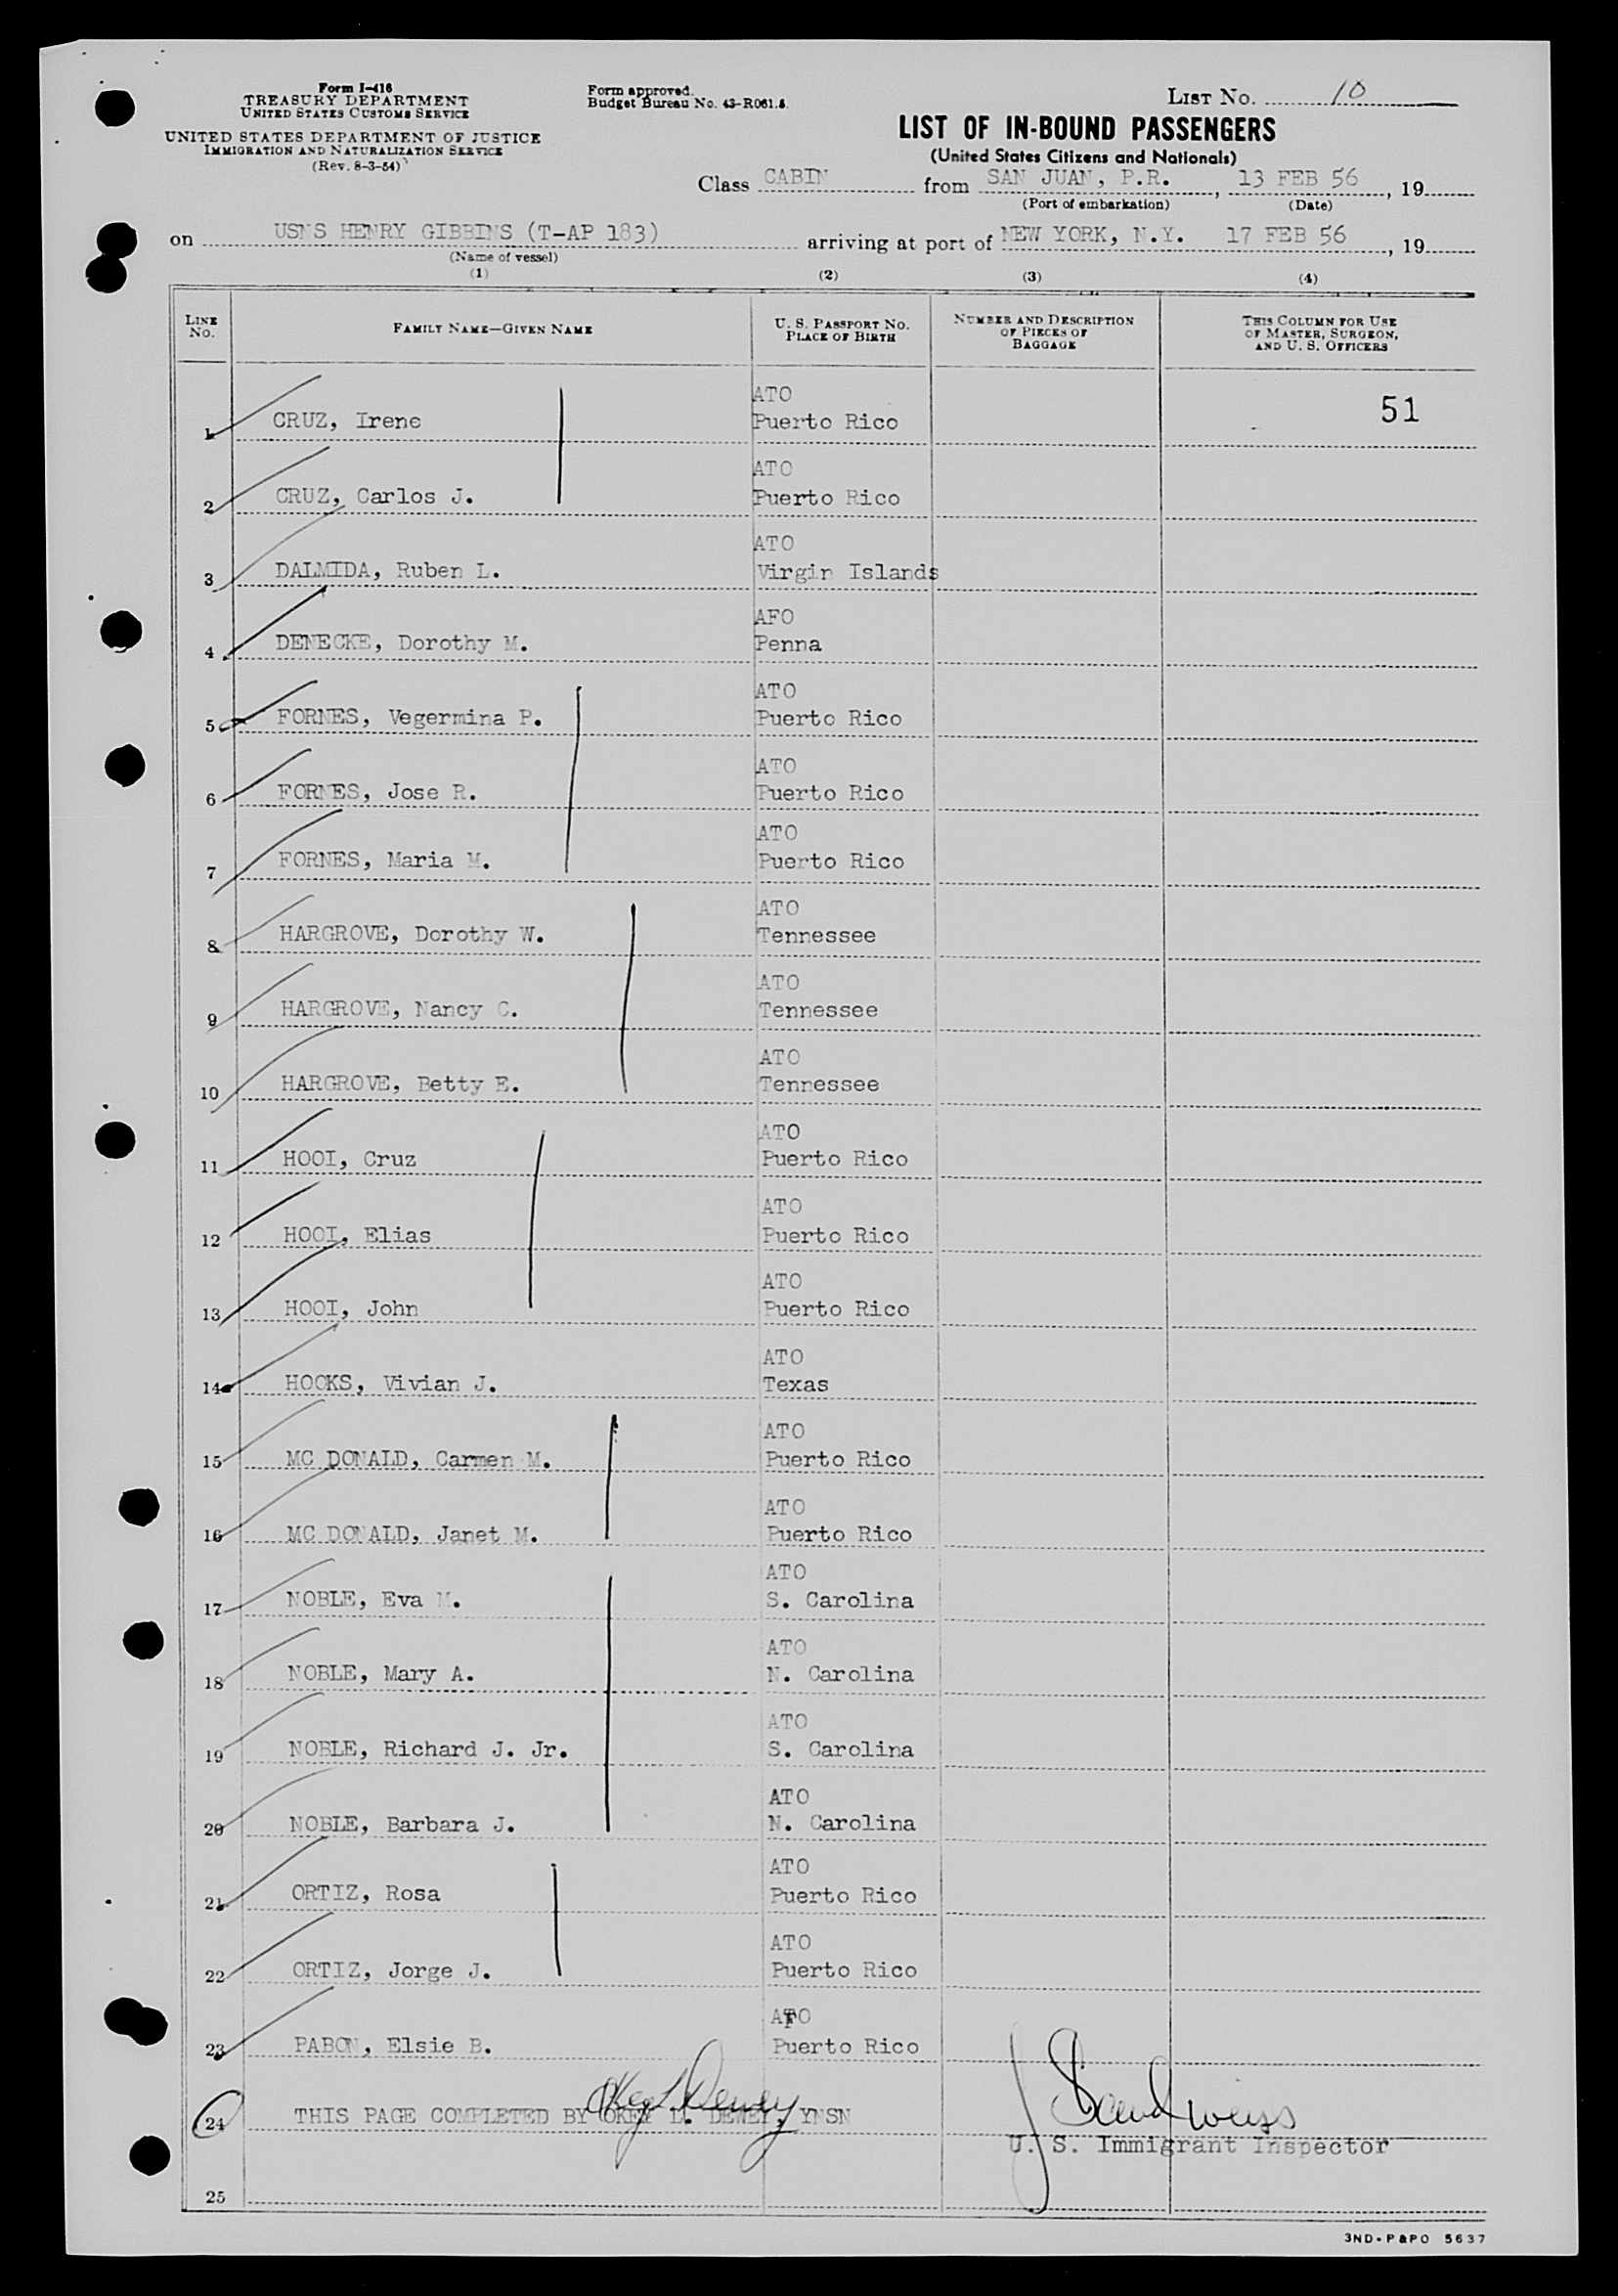 Form I-416
TREASURY DEPARTMENT
UNITED STATES CUSTOMS SERVICE
UNITED STATES DEPARTMENT OF JUSTICE
IMMIGRATION AND NATURALIZATION SERVICE
(Rev. 8-3-54)
Form approved.
Budget Bureau No. 43-R061.5.
LIST NO. 10
LIST OF IN-BOUND PASSENGERS
(United States Citizens and Nationals)
Class CABIN from SAN JUAN, P.R., 13 FEB 56, 19
(Port of embarkation) (Date)
on USNS HENRY GIBBINS (T-AP 183) arriving at port of NEW YORK, N.Y. 17 FEB 56, 19
(Name of vessel)
(1) (2) (3) (4)
LINE NO. FAMILY NAME—GIVEN NAME U. S. PASSPORT NO. PLACE OF BIRTH NUMBER AND DESCRIPTION OF PIECES OF BAGGAGE THIS COLUMN FOR USE OF MASTER, SURGEON, AND U. S. OFFICERS
ATO
1 CRUZ, Irene Puerto Rico 51
ATO
2 CRUZ, Carlos J. Puerto Rico
ATO
3 DALMIDA, Ruben L. Virgin Islands
AFO
4 DENECKE, Dorothy M. Penna
ATO
5 FORNES, Vegermina P. Puerto Rico
ATO
6 FORNES, Jose R. Puerto Rico
ATO
7 FORNES, Maria M. Puerto Rico
ATO
8 HARGROVE, Dorothy W. Tennessee
ATO
9 HARGROVE, Nancy C. Tennessee
ATO
10 HARGROVE, Betty E. Tennessee
ATO
11 HOOI, Cruz Puerto Rico
ATO
12 HOOI, Elias Puerto Rico
ATO
13 HOOI, John Puerto Rico
ATO
14 HOOKS, Vivian J. Texas
ATO
15 MC DONALD, Carmen M. Puerto Rico
ATO
16 MC DONALD, Janet M. Puerto Rico
ATO
17 NOBLE, Eva M. S. Carolina
ATO
18 NOBLE, Mary A. N. Carolina
ATO
19 NOBLE, Richard J. Jr. S. Carolina
ATO
20 NOBLE, Barbara J. N. Carolina
ATO
21 ORTIZ, Rosa Puerto Rico
ATO
22 ORTIZ, Jorge J. Puerto Rico
AFO
23 PABON, Elsie B. Puerto Rico
Okey L Dewey
24 THIS PAGE COMPLETED BY OKEY L. DEWEY, YNSN
J Sandweiss
U. S. Immigrant Inspector
25
3ND-P&PO 5637